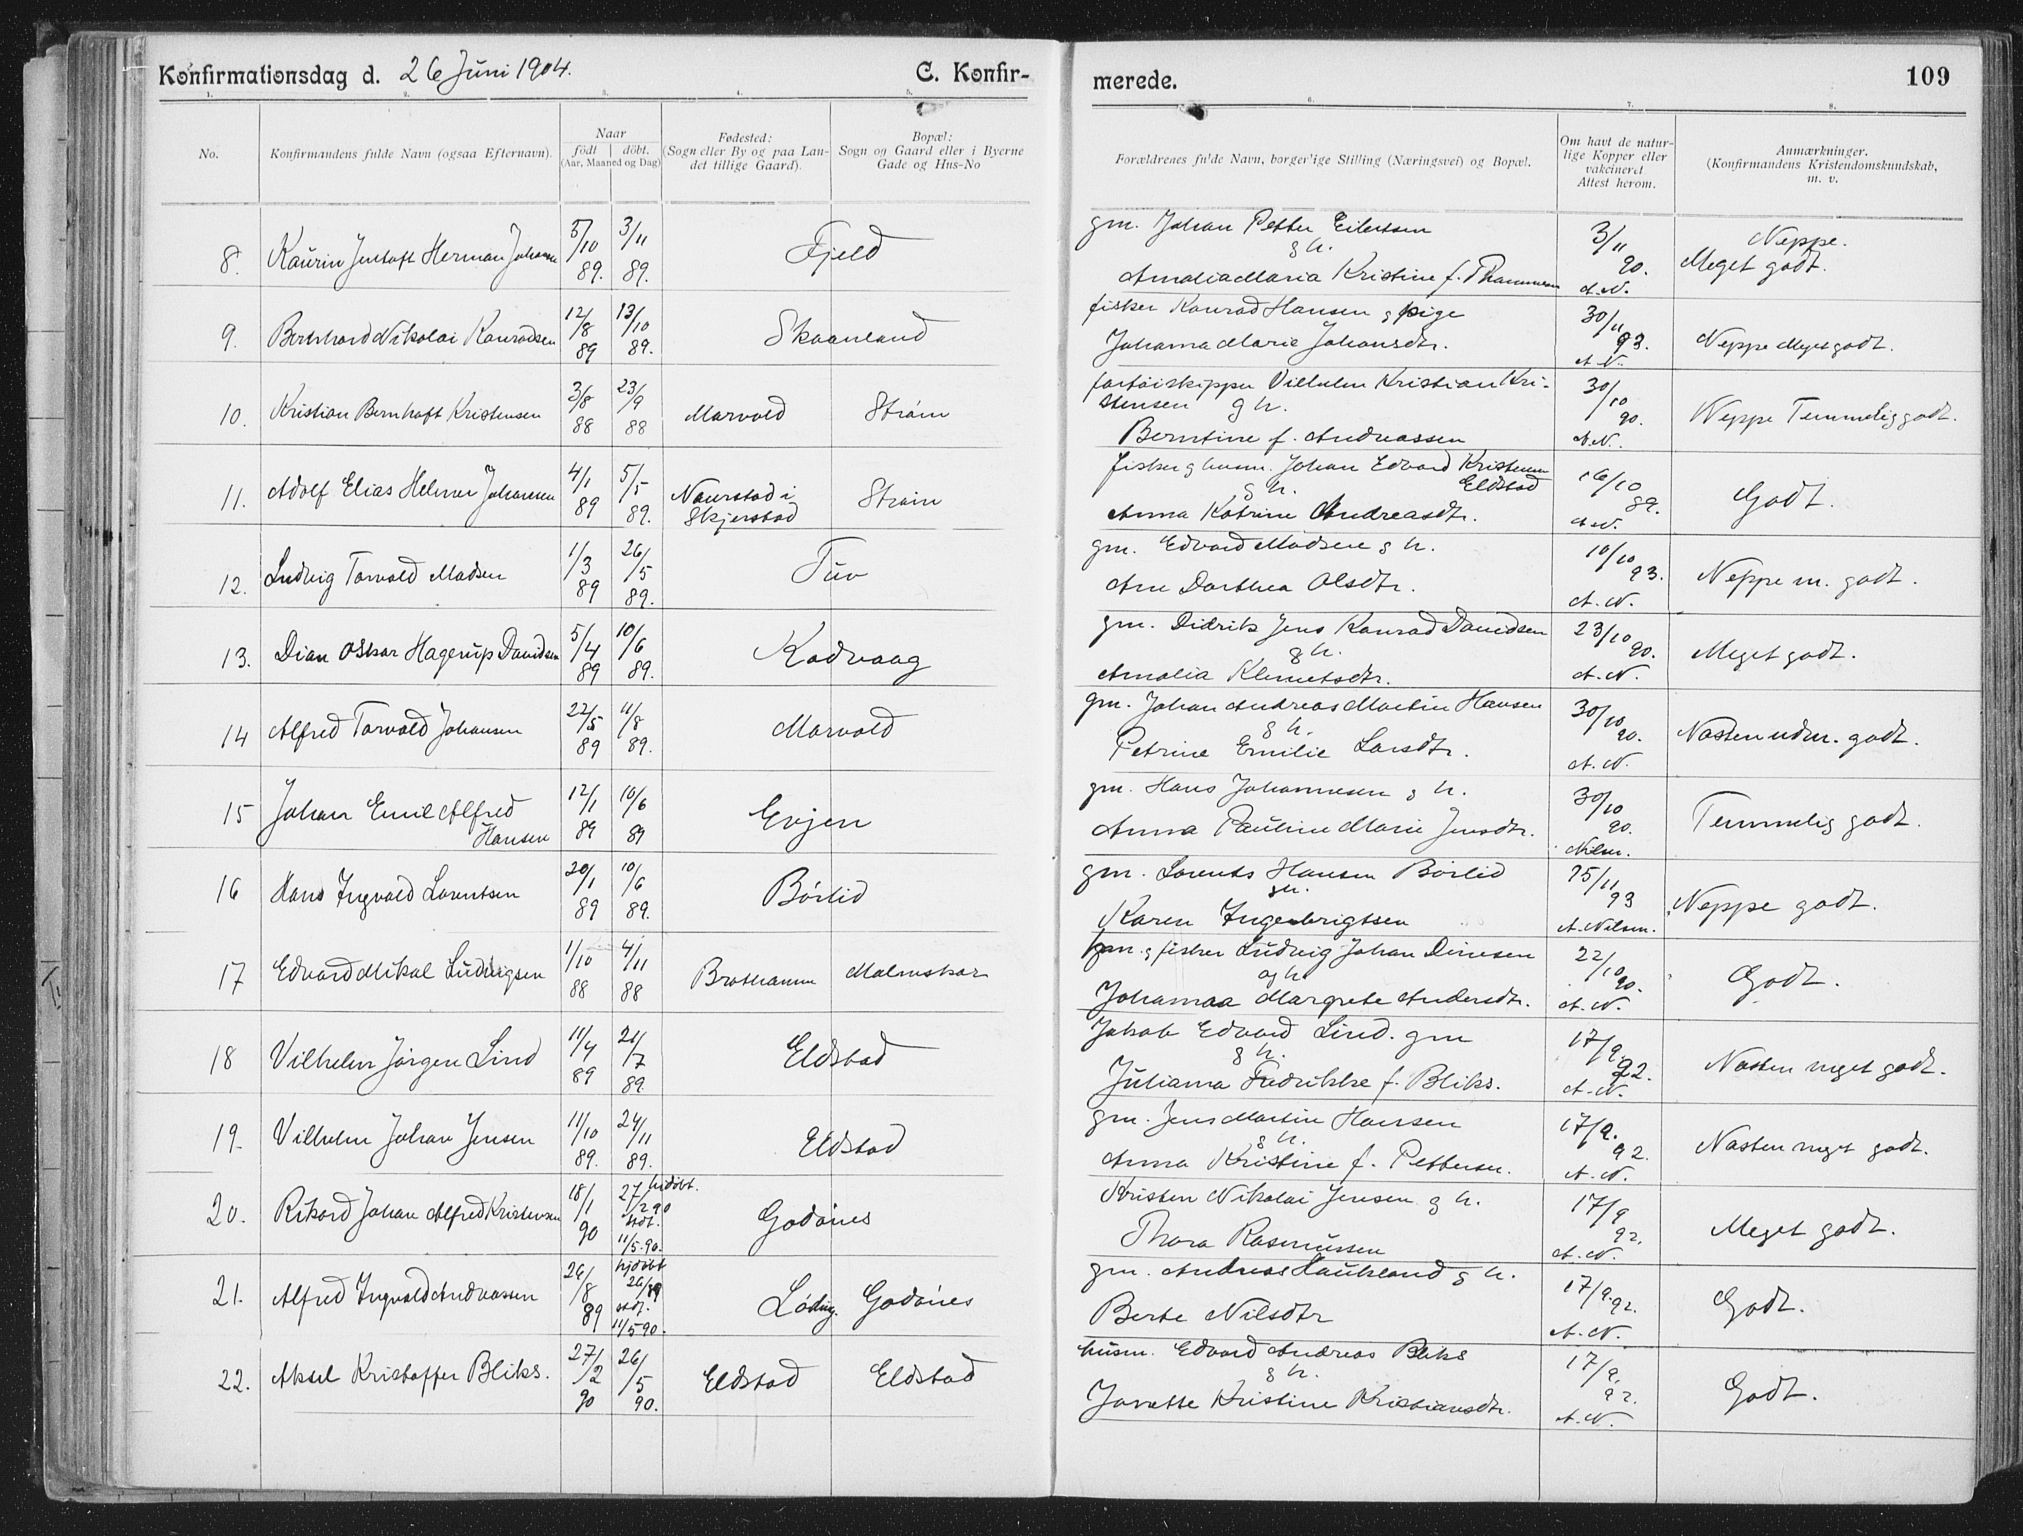 Konfirmationsdag d. 26 Juni 1904. C. Konfir-
merede. 109
1. 2. 3. 4. 5.
6. 7. 8.
No.
Konfirmandens fulde Navn (ogsaa Efternavn).
Naar
födt döbt.
(Aar, Maaned og Dag)
Fødested:
(Sogn eller By og paa Lan-
det tillige Gaard).
Bopæl:
Sogn og Gaard eller i Byerne
Gade og Hus-No
Forældrenes fulde Navn, borgerlige Stilling (Næringsvei) og Bopæl.
Om havt de natur-
lige Kopper eller
vakcineret
Attest herom.
Anmærkninger.
(Konfirmandens Kristendomskundskab,
m. v.
8. Kaurin Jentoft Herman Johansen 5/10 89. 3/11 89. Fjeld
gm. Johan Petter Eilertsen
g h.
Amalia Maria Kristine f.
3/11 90. A.N.
Neppe.
Meget godt.
9. Bernhard Nikolai Konradsen 12/8 89 13/10 89. Skaanland
fisker Konrad Hansen g pige
Johanna Marie Johansdtr.
30/11 93. A.N.
Neppe Meget godt.
10. Kristian Bernhoft Kristensen 3/8 88 23/9 88 Marvold Strøm
fartøiskipper Vilhelm Kristian Kri-
stensen g h.
Berntine f. Andreassen
30/10 90. A.N.
Neppe Temmelig godt.
11. Adolf Elias Helmer Johansen 4/1 89 5/5 89. Naurstad i
Skjerstad Strøm
fisker g husm. Johan Edvard Kristensen
Eldstad
g h.
Anna Katrine Andreasdtr.
16/10 89. A.N.
Godt.
12. Ludvig Torvald Madsen 1/3 89 26/5 89. Tuv
gm. Edvard Madsen g h.
Ane Dorthea Olsdtr.
10/10 93. A.N.
Neppe m. godt.
13. Dian Oskar Hagerup Davidsen 5/4 89 10/6 89. Kodvaag
gm. Didrik Jens Konrad Davidsen
g h.
Amalia Klemetsdtr.
23/10 90. A.N.
Meget godt.
14 Alfred Torvald Johansen 22/5 89 11/8 89. Marvold
gm. Johan Andreas Martin Hansen
g h.
Petrine Emilie Larsdtr.
30/10 90. A.N.
Næsten udm. godt.
15 Johan Emil Alfred
Hansen 12/1 89 10/6 89 Evjen
gm. Hans Johannesen g h.
Anna Pauline Marie Jensdtr.
30/10 90. Nilsen.
Temmelig godt.
16 Hans Ingvald Lorentsen 20/1 89 10/6 89. Börlid
gm. Lorents Hansen Börlid
g h.
Karen Ingebrigtsen
25/11 93 A. Nilsen.
Neppe godt.
17 Edvard Mikal Ludvigsen 1/10 88 4/11 88 Brathamm Malmskar
gm. g fisker Ludvig Johan Dinesen
og h.
Johanna Margrete Andersdtr.
22/10 90. A.N.
Godt.
18 Vilhelm Jörgen Lind 11/4 89 21/7 89. Eldstad
Jakob Edvard Lind. gm
g h.
Juliana Fredrikke f. Bliks.
17/9. 92. A.N.
Næsten meget godt.
19. Vilhelm Johan Jensen 11/10 89. 24/11 89. Eldstad
gm. Jens Martin Hansen
g h.
Anna Kristine f. Pettersen.
17/9. 92. A.N.
Næsten meget godt.
20. Rikard Johan Alfred Kristensen 18/1 90 27/2 90 hjdöbt.
stdf.
11/5-90. Godönes
Kristen Nikolai Jensen g h.
Thora Rasmussen
17/9 92. A.N.
Meget godt.
21. Alfred Ingvald Andreassen 26/8 89 hjdöbt
26/ 89
stdf.
11/5 90. Löding. Godönes
gm. Andreas Haukland g h.
Berte Nilsdtr
17/9. 92. A.N.
Godt.
22. Aksel Kristoffer Bliks. 27/2 90 26/5 90. Eldstad Eldstad
husm. Edvard Andreas Bliks
g h.
Javette Kristine Kristiansdtr.
17/9. 92. A.N.
Godt.